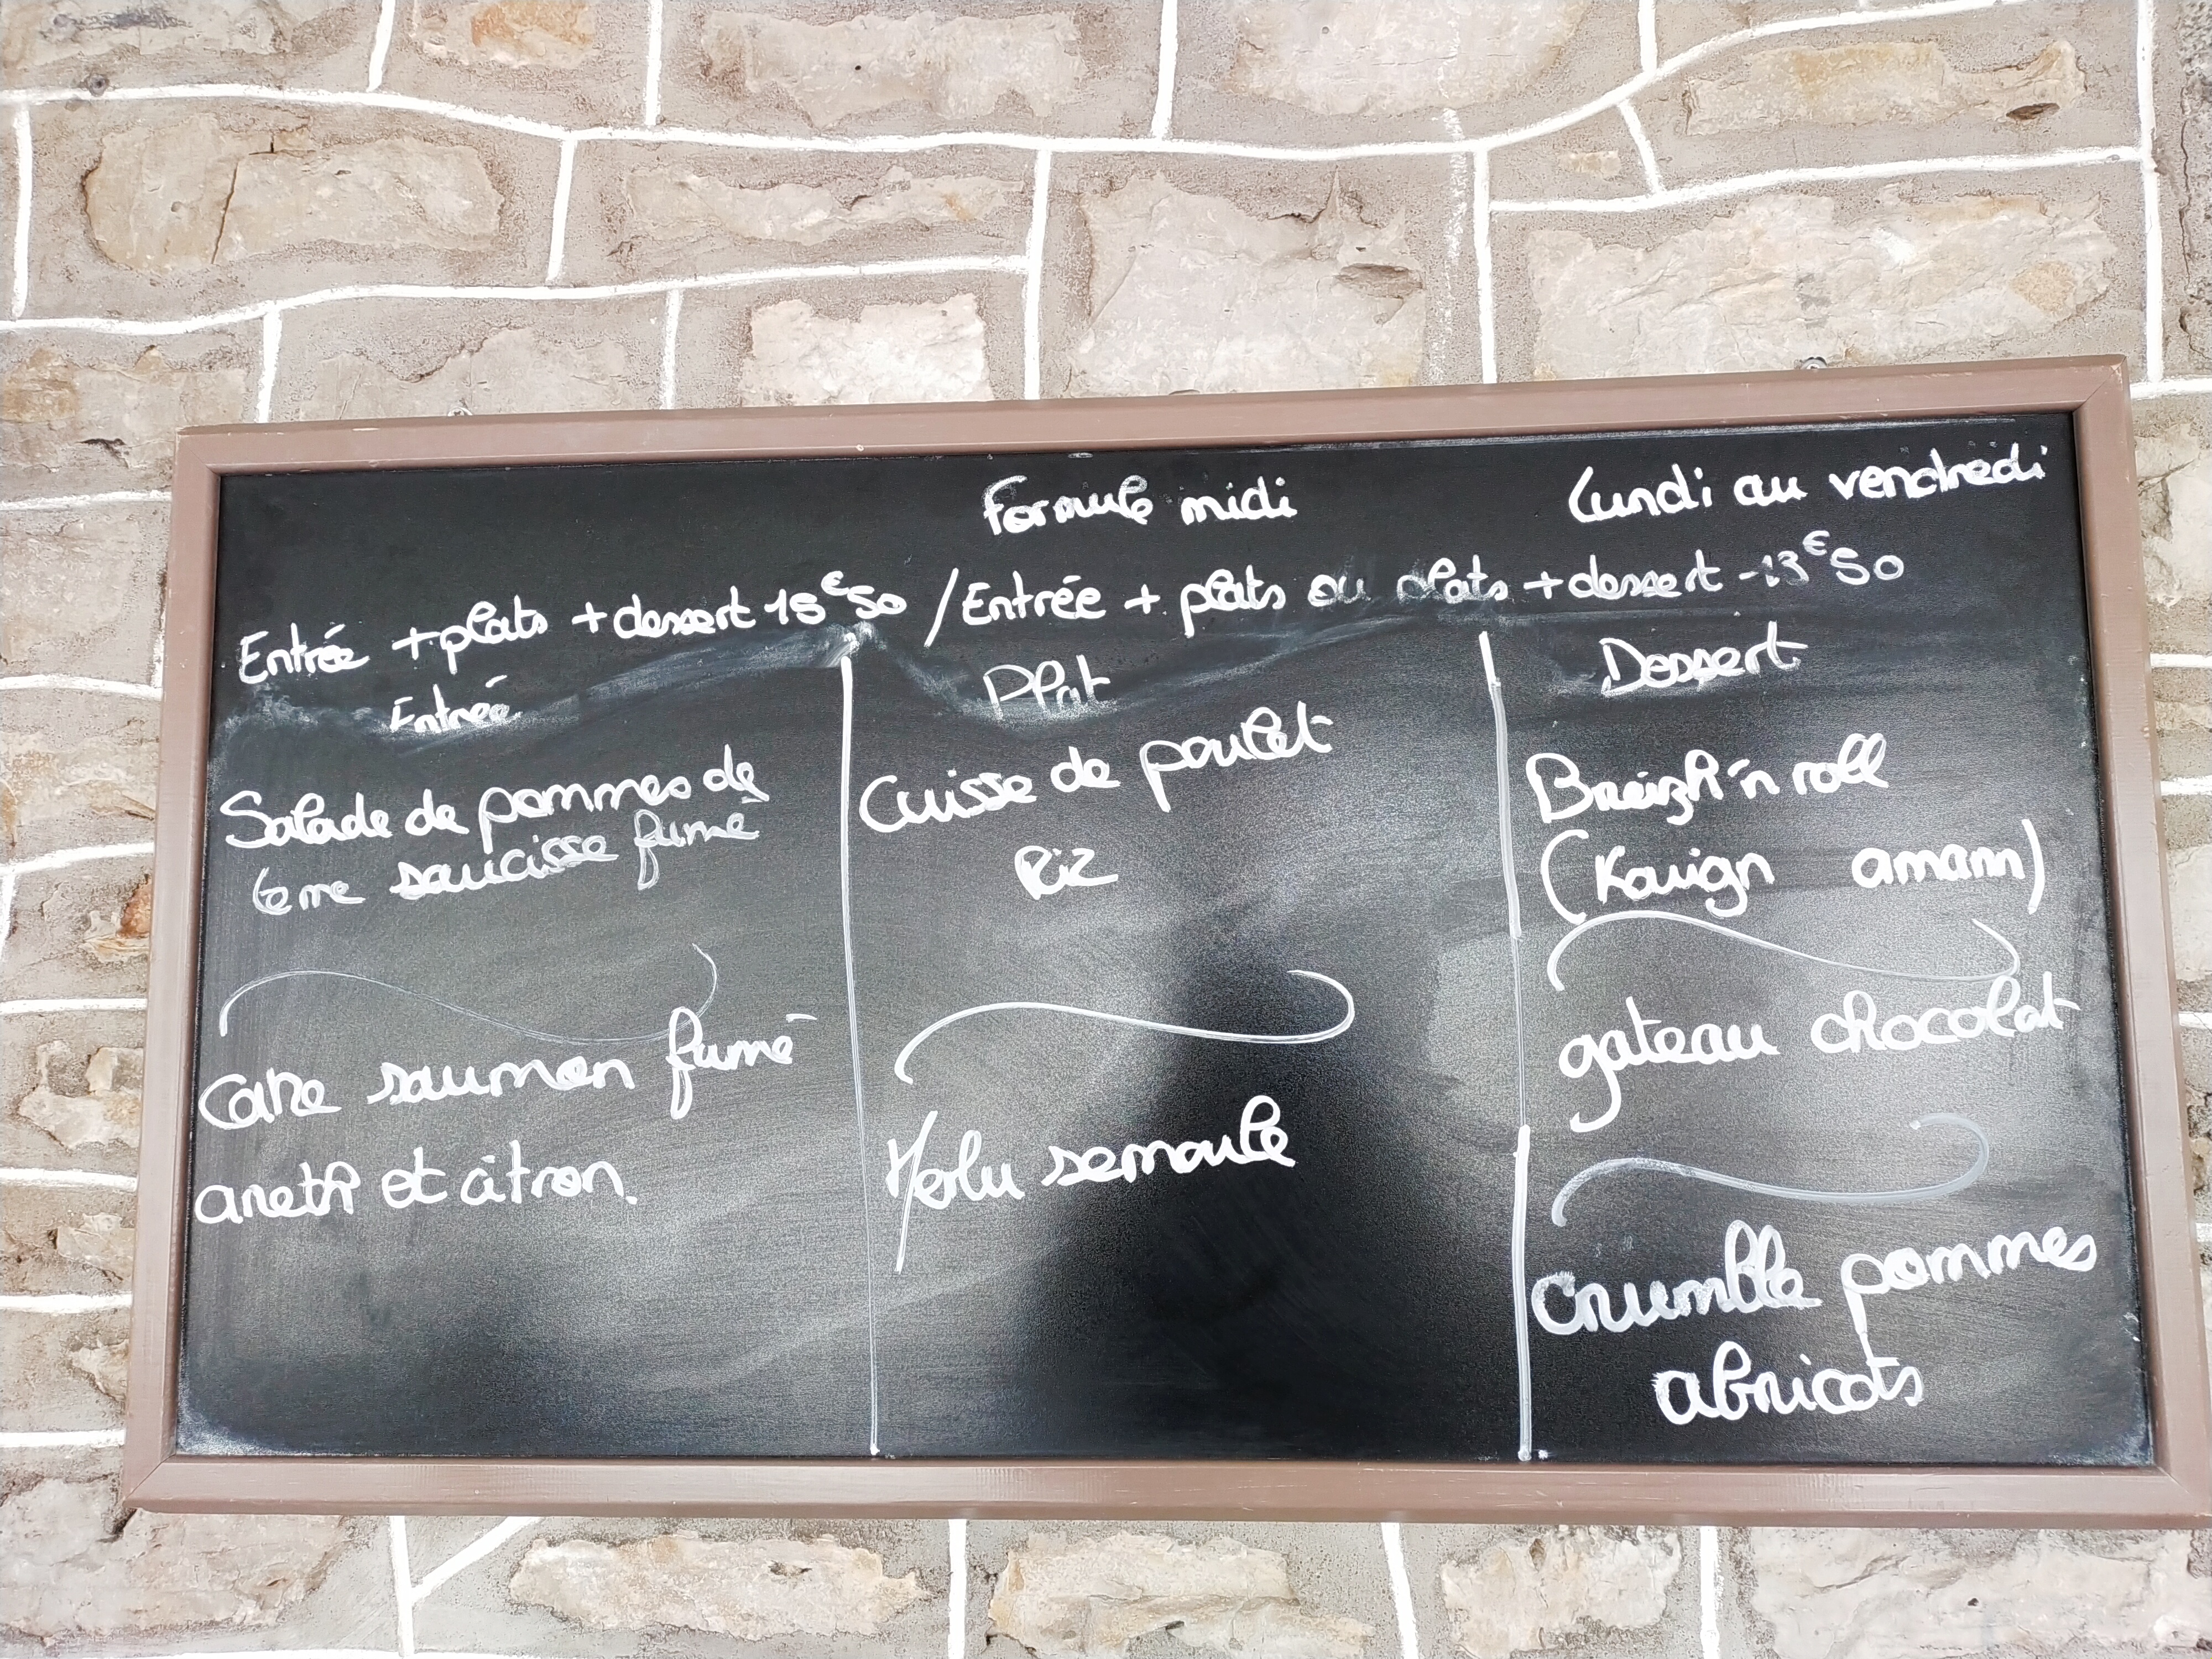 Formule midi Lundi au vendredi
Entrée + plats + dessert 15€50 / Entrée + plats ou plats + dessert - 13€50
Entrée
Salade de pommes de
terre saucisse fumé
Cake saumon fumé
aneth et citron.
Plat
Cuisse de poulet
Riz
Merlu semoule
Dessert
Breizh'n roll
(Kouign amann)
gateau chocolat
Crumble pommes
abricots